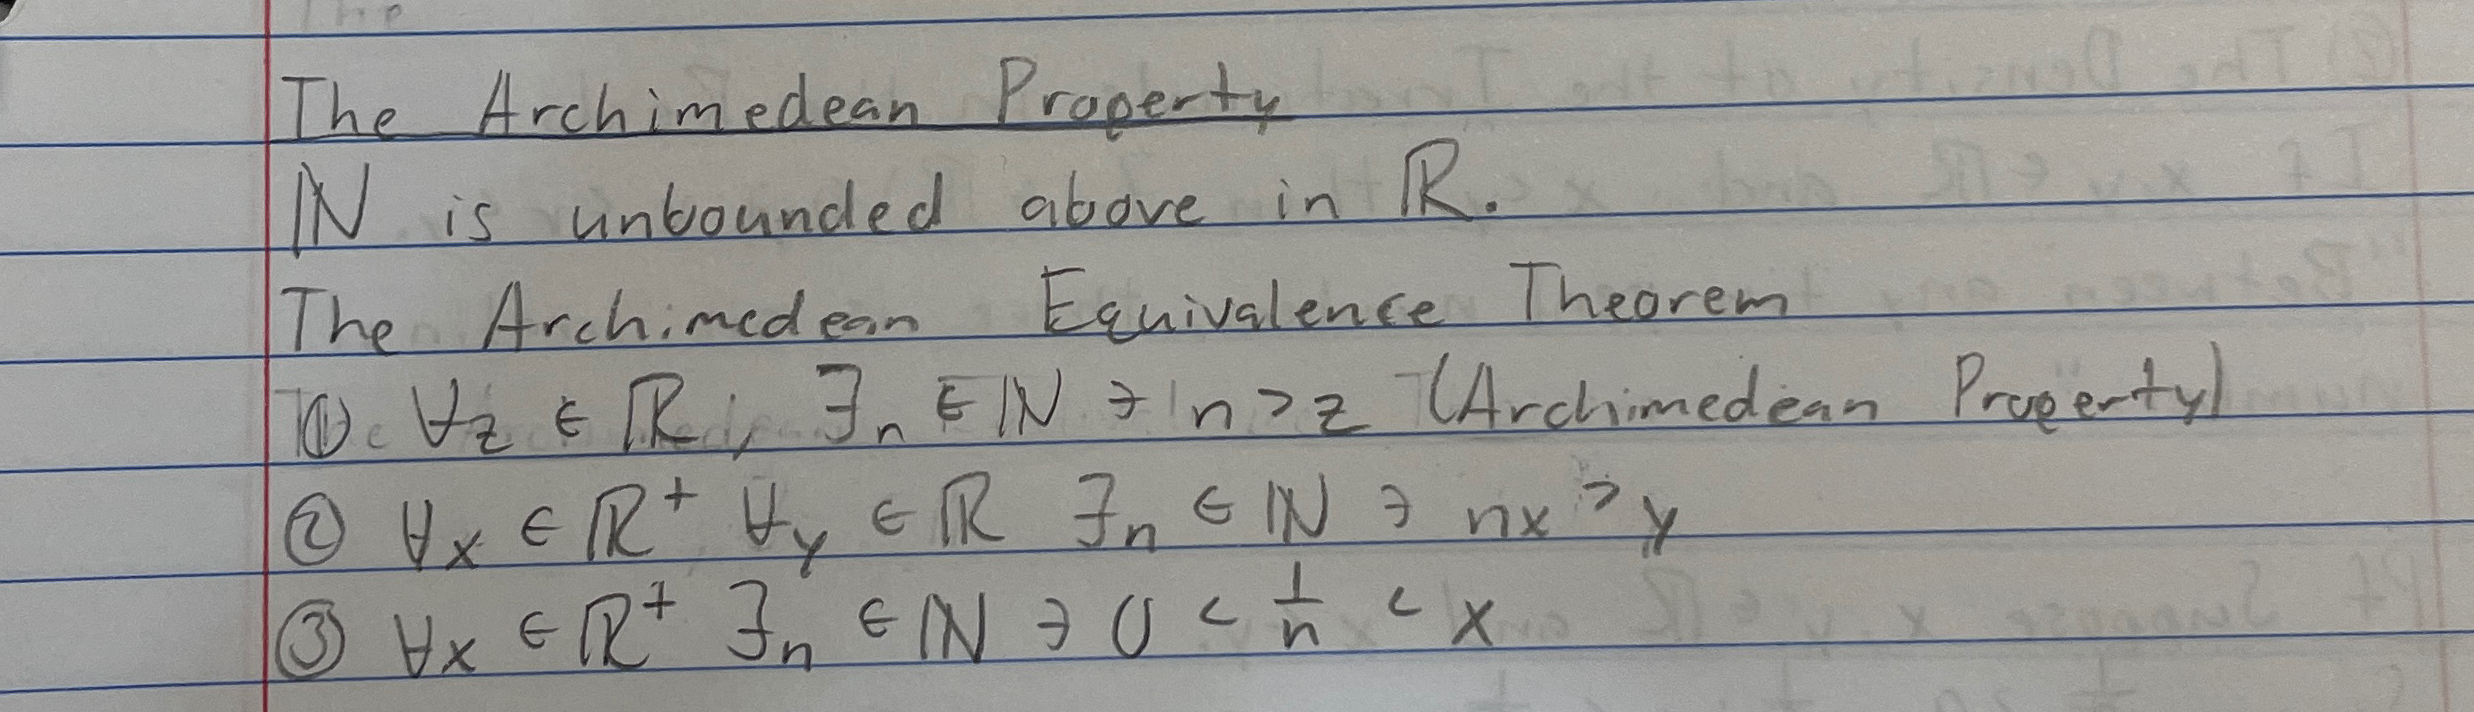 The Archimedean Property
ℕ is unbounded above in ℝ.
The Archimedean Equivalence Theorem
① ∀z ∈ ℝ, ∃n ∈ ℕ ∋ n > z (Archimedean Property)
② ∀x ∈ ℝ⁺ ∀y ∈ ℝ ∃n ∈ ℕ ∋ nx > y
③ ∀x ∈ ℝ⁺ ∃n ∈ ℕ ∋ 0 < 1/n < x